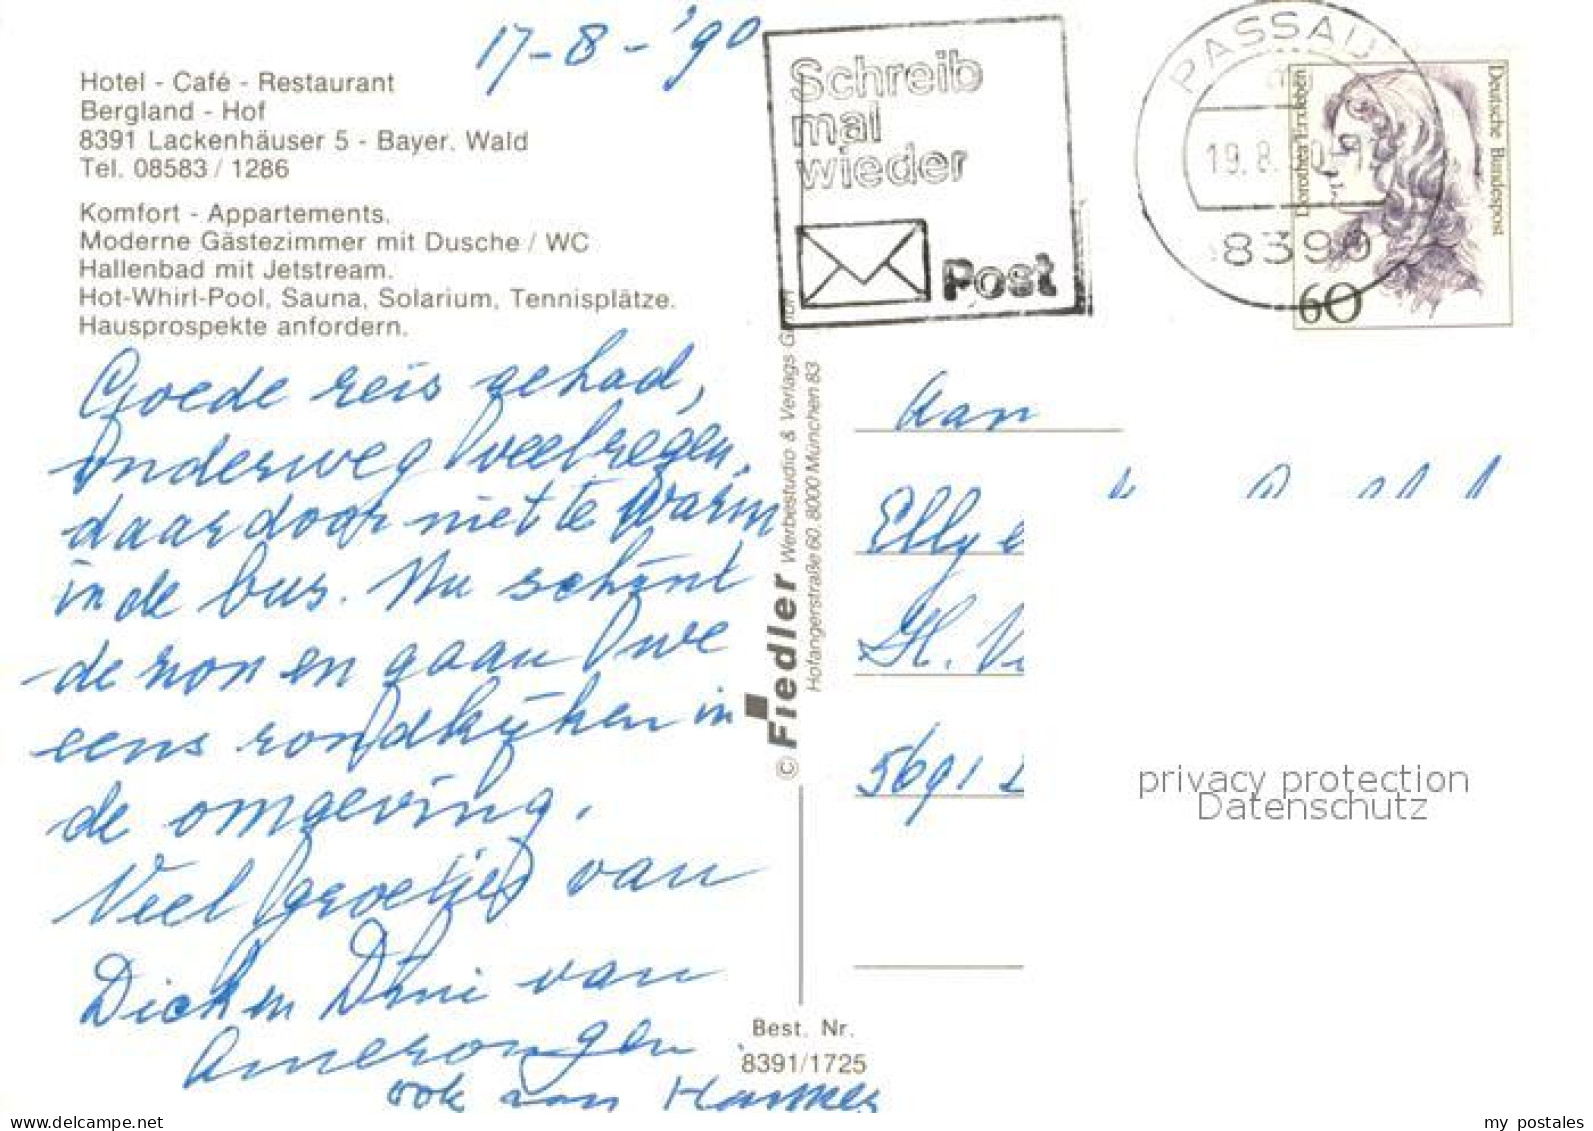 17-8-'90
Hotel - Café - Restaurant
Bergland - Hof
8391 Lackenhäuser 5 - Bayer. Wald
Tel. 08583 / 1286
Komfort - Appartements.
Moderne Gästezimmer mit Dusche / WC
Hallenbad mit Jetstream.
Hot-Whirl-Pool, Sauna, Solarium, Tennisplätze.
Hausprospekte anfordern.
Goede reis gehad,
Onderweg veel regen,
daardoor niet te warm
in de bus. Nu schijnt
de zon en gaan we
eens rondkijken in
de omgeving.
Veel groetjes van
Dick en Dini van
Amerongen
ook van
Schreib
mal
wieder
Post
PASSAU
19.8.
8390
Dorothea Erxleben
Deutsche Bundespost
60
© Fiedler Werbestudio & Verlags GmbH
Hofangerstraße 60, 8000 München 83
Aan
Elly
5691
privacy protection
Datenschutz
Best. Nr.
8391/1725
my postales
delcampe.net